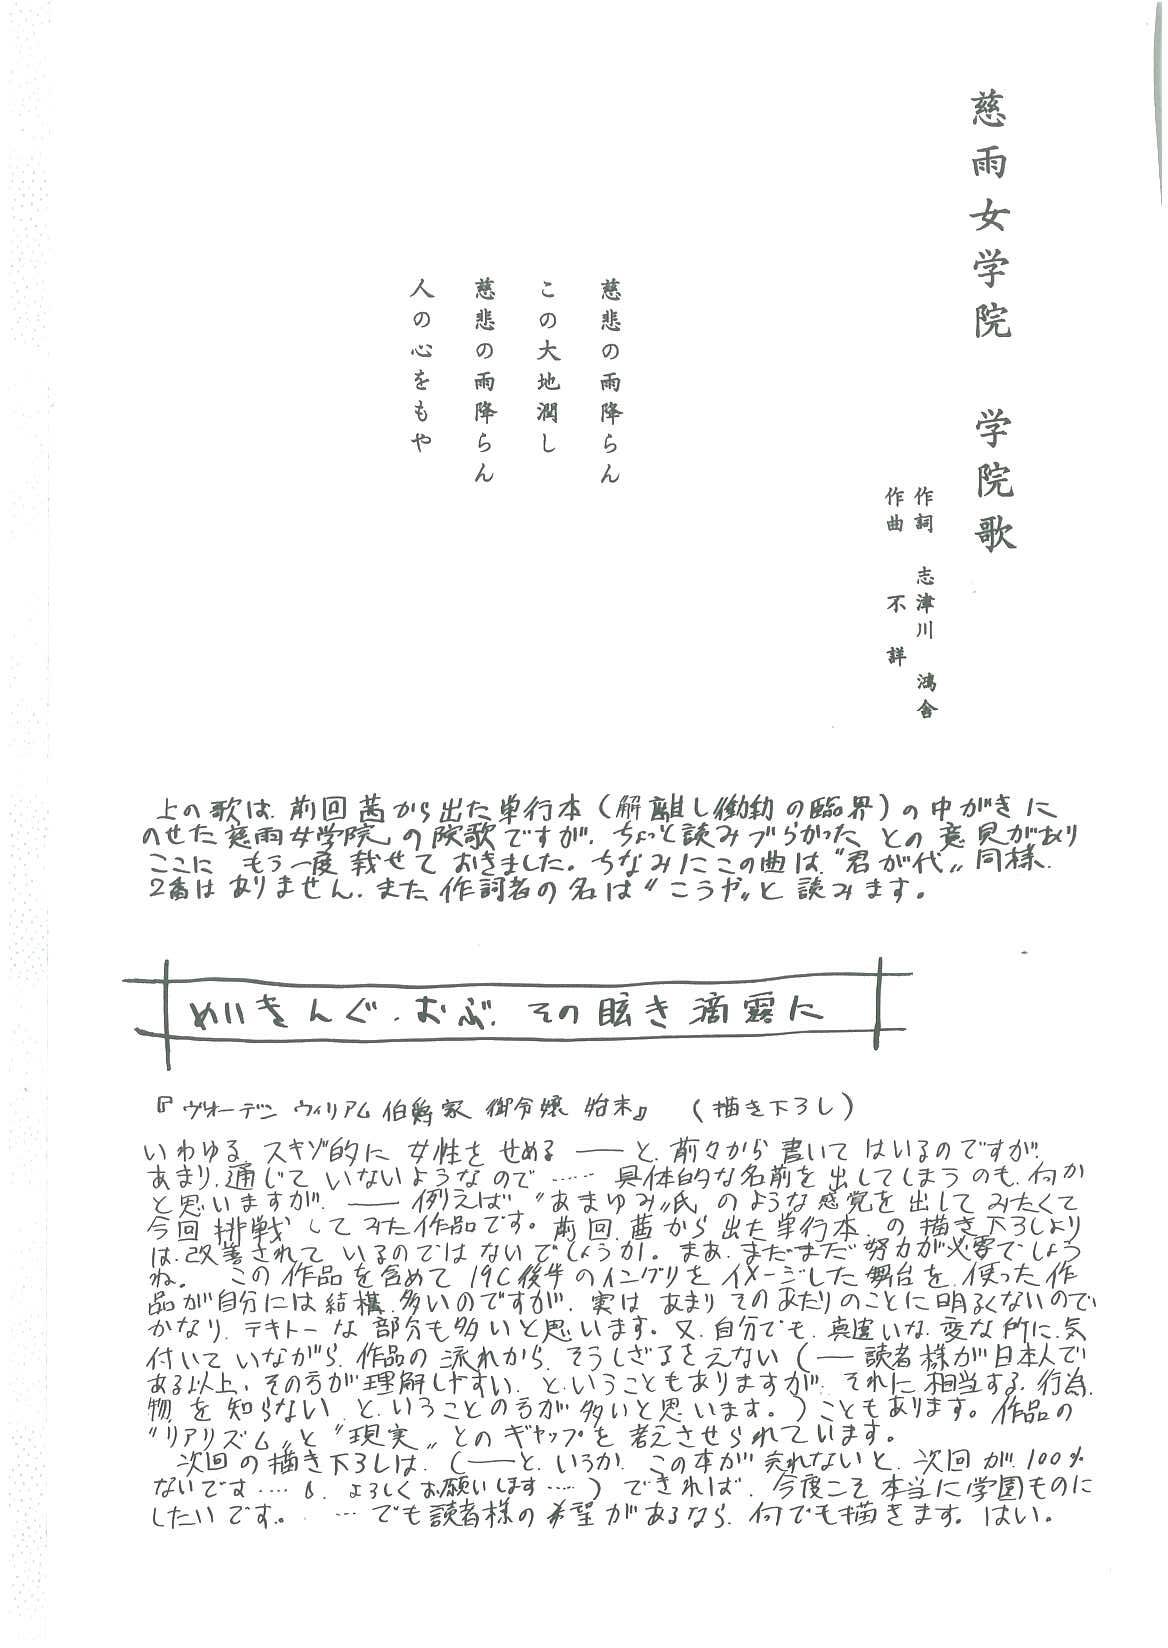 慈雨女学院　学院歌
作詞　志津川　鴻舎
作曲　不詳
慈悲の雨降らん
この大地潤し
慈悲の雨降らん
人の心をもや
上の歌は、前回茜から出た単行本（解離し働動の臨界）の中がきに
のせた慈雨女学院の院歌ですが、ちょっと読みづらかったとの意見があり
ここにもう一度載せておきました。ちなみにこの曲は〝君が代〟同様、
2番はありません。また、作詞者の名は〝こうや〟と読みます。
めいきんぐ・おぶ・その眩き滴露に
『ヴォーデンウィリアム伯爵家御令嬢始末』（描き下ろし）
いわゆる、スキゾ的に女性をせめる――と、前々から書いてはいるのですが、
あまり、通じていないようなので……具体的な名前を出してしまうのも、何か
と思いますが、――例えば〝あまゆみ〟氏のような感覚を出してみたくて
今回挑戦してみた作品です。前回、茜から出た単行本、の描き下ろしより
は、改善されているのではないでしょうか。まあ、まだまだ努力が必要でしょう
ね。この作品を含めて19C後半のイングリをイメージした舞台を、使った作
品が自分には結構、多いのですが、実は、あまりそのあたりのことに明るくないので、
かなり、テキトーな部分も多いと思います。又、自分でも、真違いな、変な所に、気
付いていながら、作品の流れから、そうしざるをえない（――読者様が日本人で
ある以上、その方が理解しやすい、と、いうこともありますが、それに相当する、行為、
物を知らない、と、いうことの方が多いと思います。）こともあります。作品の
〝リアリズム〟と〝現実〟とのギャップを考えさせられています。
次回の描き下ろしは、（――と、いうか、この本が売れないと、次回が、100%
ないです……よろしくお願いします……）できれば、今度こそ本当に学園ものに
したいです。…でも読者様の希望があるなら、何でも描きます。はい。